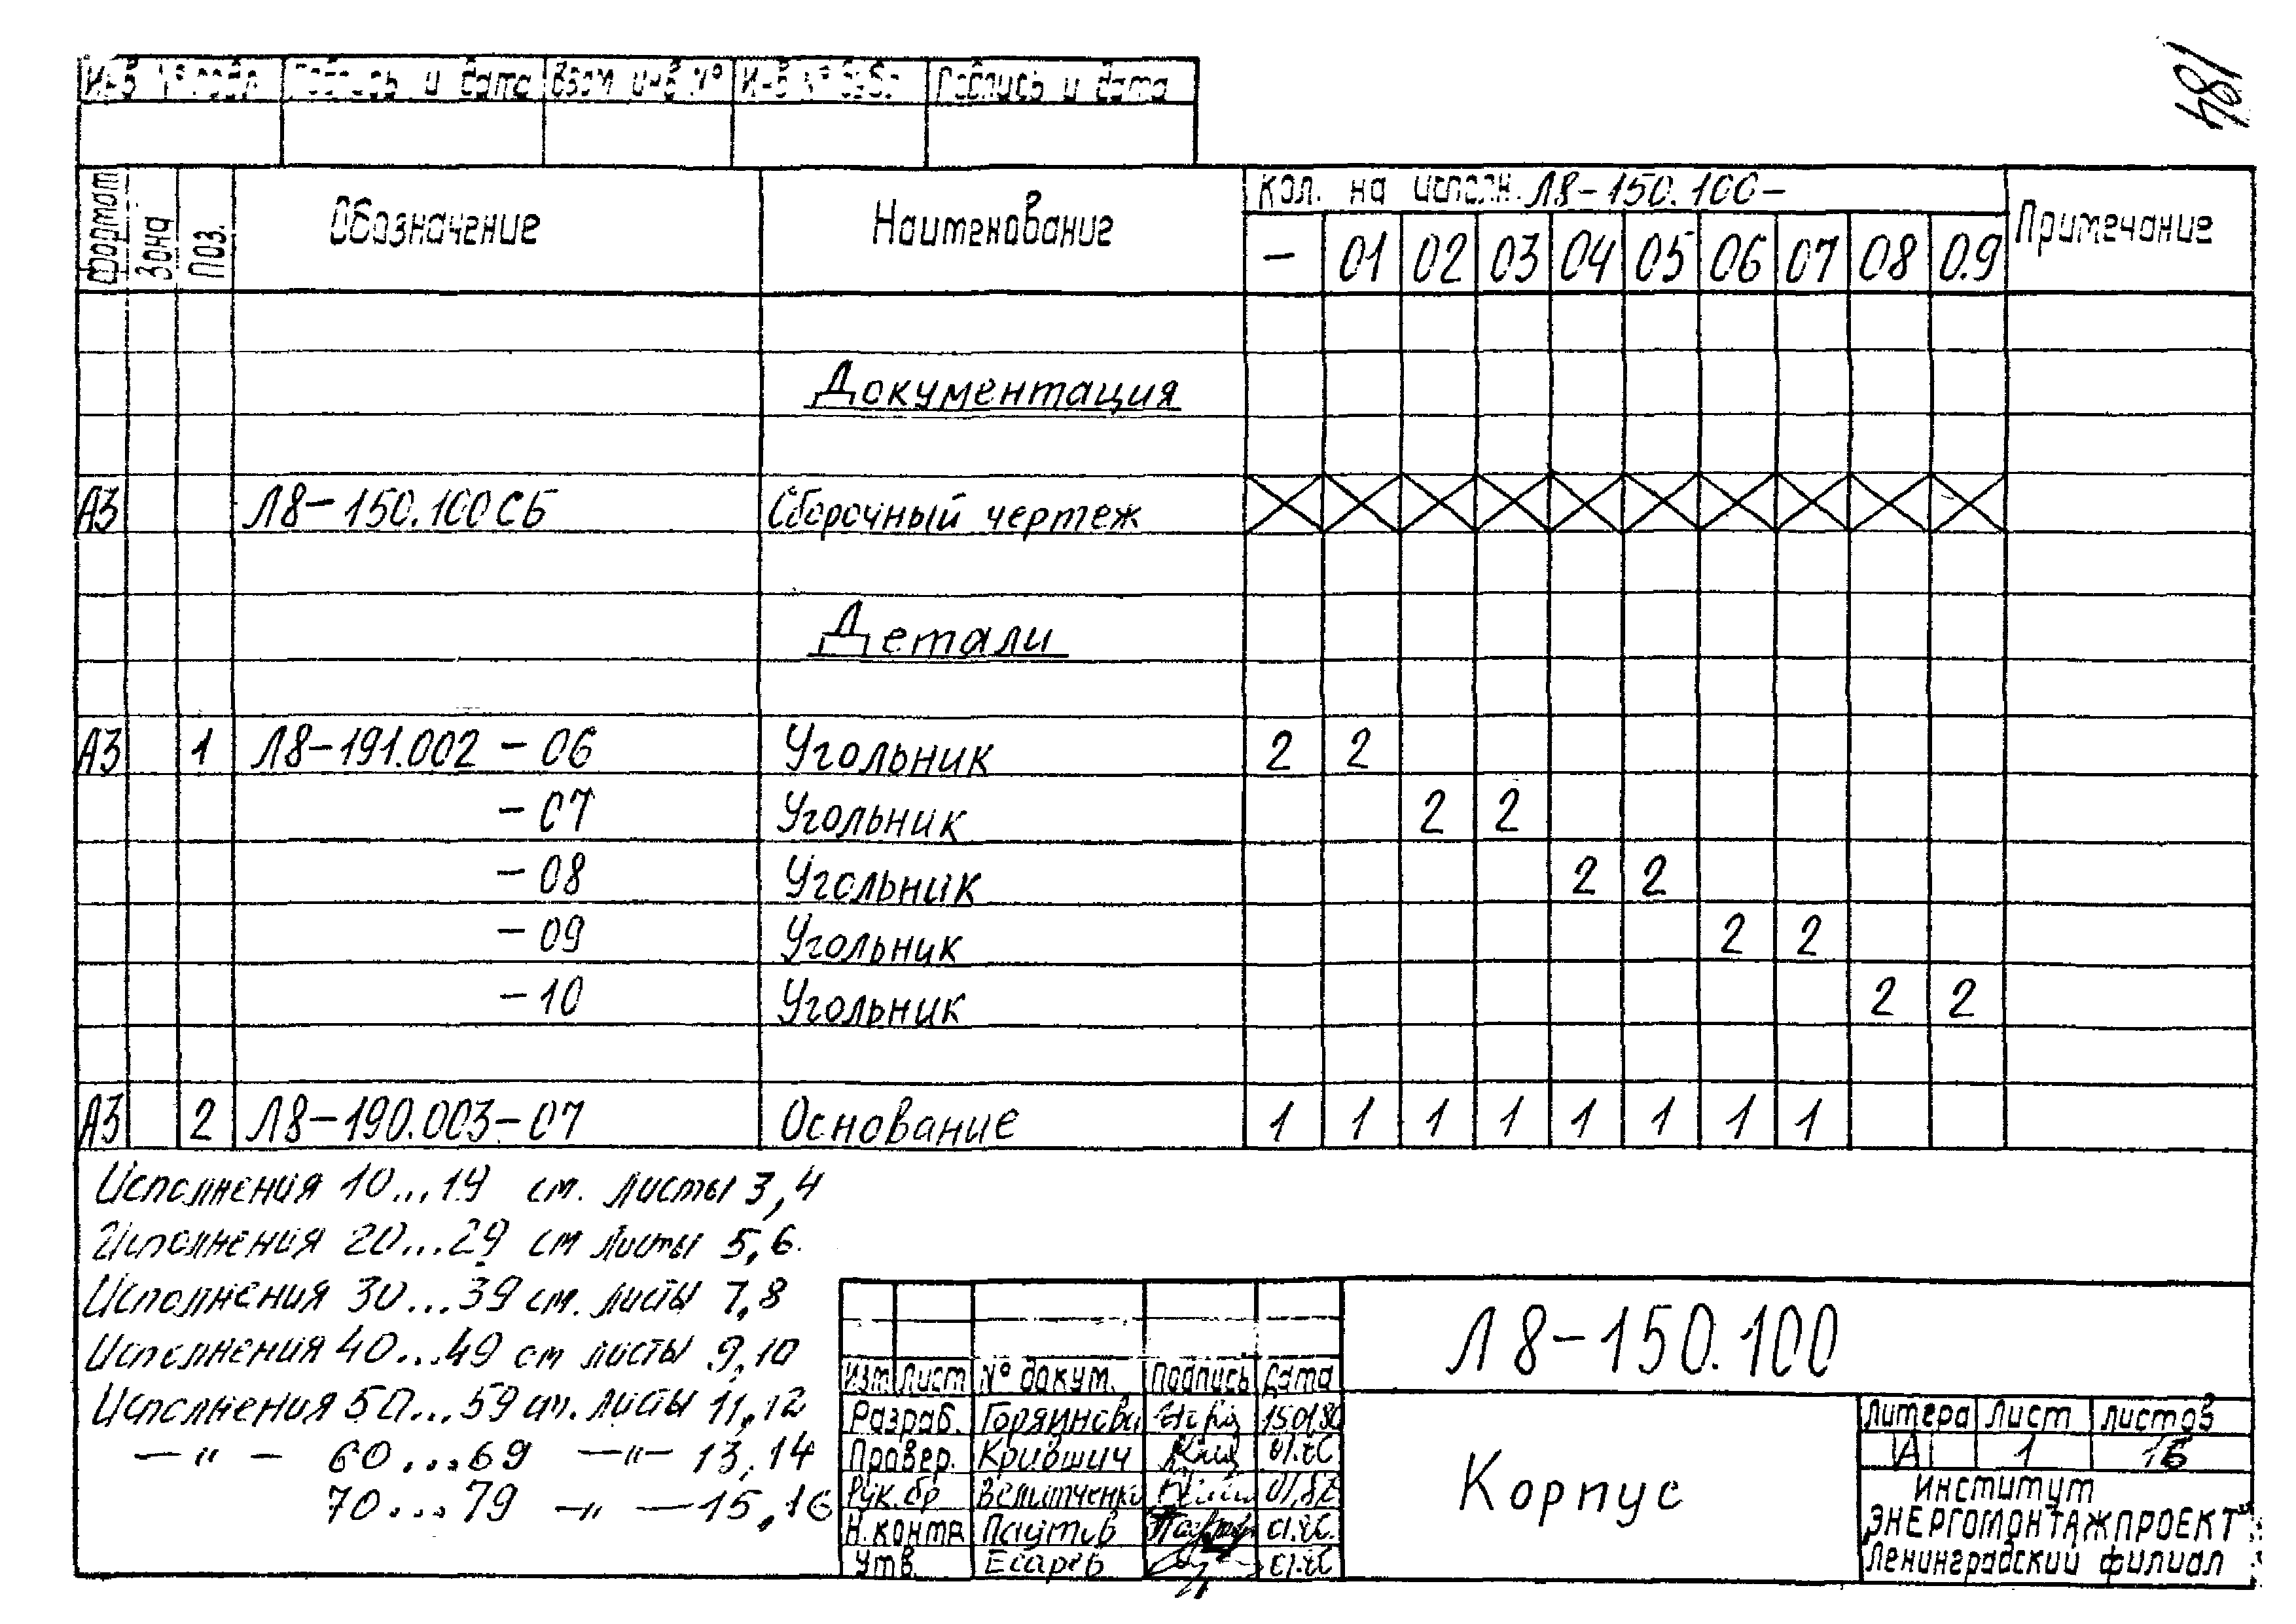 184
Инв № подл. Подпись и дата Взам инв № Инв № дубл. Подпись и дата
Формат Зона Поз. Обозначение Наименование Кол. на исполн. Л8-150.100- Примечание
- 01 02 03 04 05 06 07 08 09
Документация
А3 Л8-150.100СБ Сборочный чертеж
Детали
А3 1 Л8-191.002 - 06 Угольник 2 2
- 07 Угольник 2 2
- 08 Угольник 2 2
- 09 Угольник 2 2
- 10 Угольник 2 2
А3 2 Л8-190.003-07 Основание 1 1 1 1 1 1 1 1
Исполнения 10...19 см. листы 3,4
Исполнения 20...29 см листы 5,6.
Исполнения 30...39 см. листы 7,8
Исполнения 40...49 см листы 9,10
Исполнения 50...59 см. листы 11,12
—"— 60...69 —"— 13,14
70...79 —"— 15,16
Л8-150.100
Изм Лист № докум. Подпись Дата
Разраб. Горяинова
Провер. Крившич
Рук. бр
Н.контр Паутов
Утв. Есарев
Корпус
Литера Лист Листов
И 1 16
ИНСТИТУТ
ЭНЕРГОМОНТАЖПРОЕКТ
Ленинградский филиал